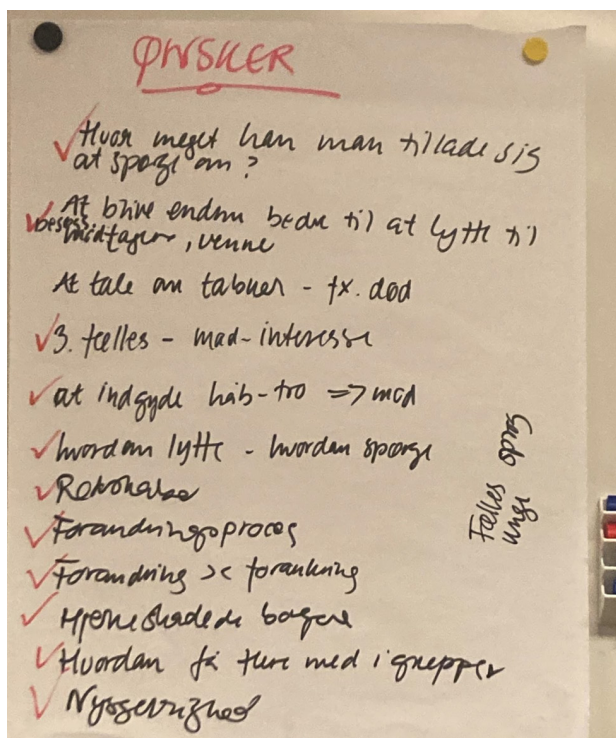 ØNSKER
Hvor meget kan man tillade sig
at spørge om?
At blive endnu bedre til at lytte til
besøgs modtagere, venne
At tale om tabuer - fx. død
3. fælles - mad-interesse
at indgyde håb-tro => mod
hvordan lytte - hvordan spørge
Forandringsproces
Forandring >< forankring
Hjerneskadede borgere
Hvordan få flere med i grupper
Nysgerrighed
Fælles opra
unge